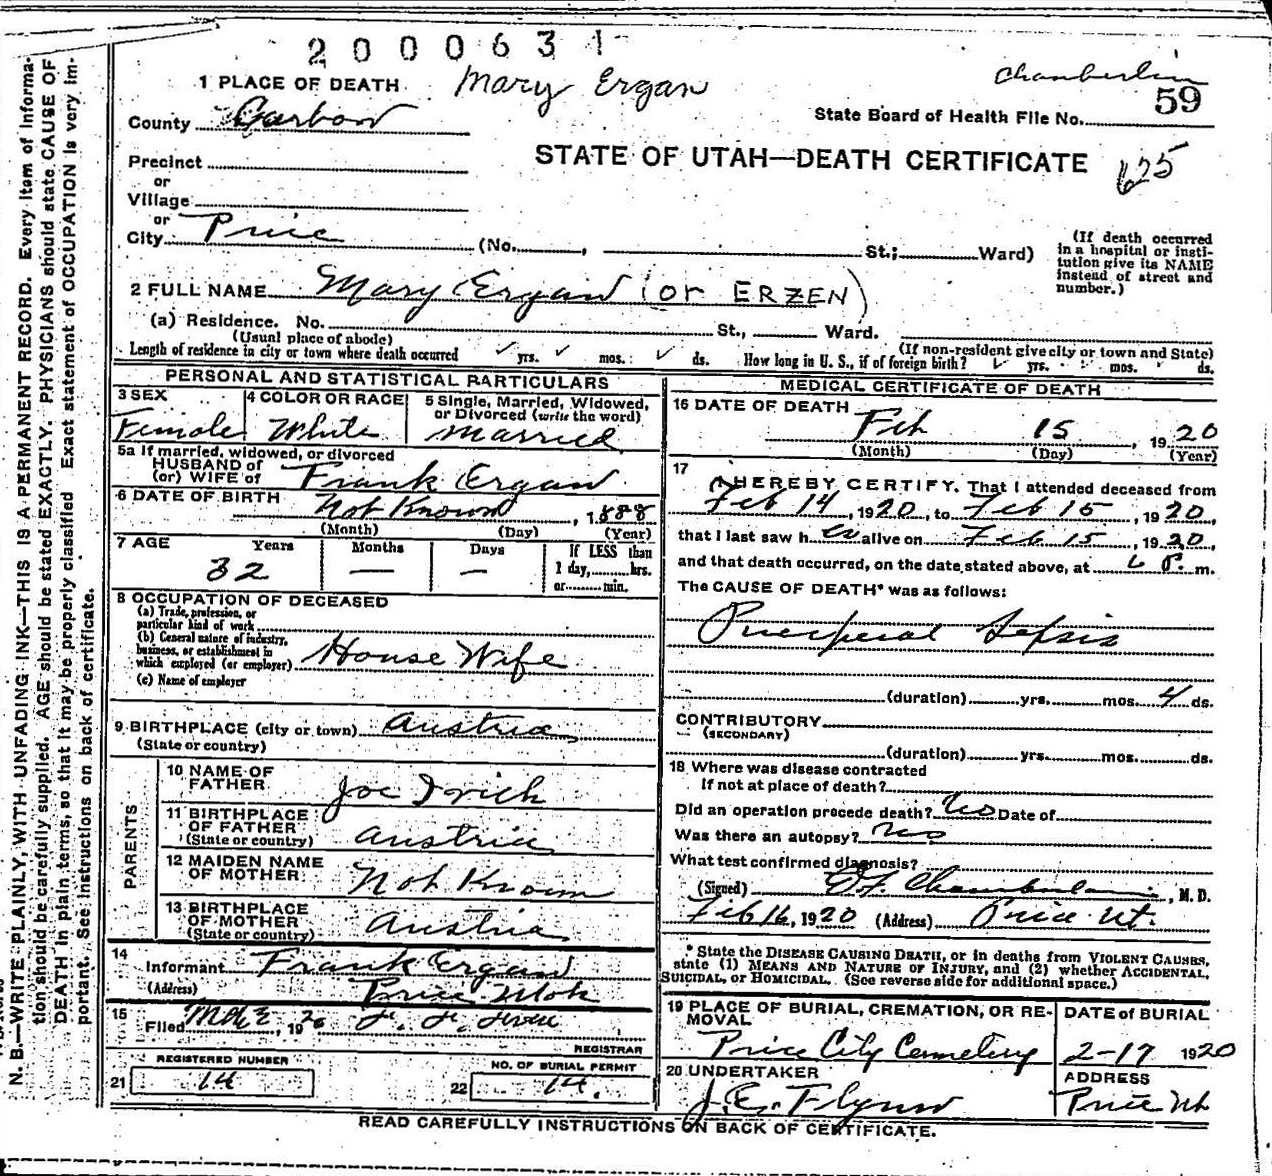 2000631
Mary Ergan
Chamberlin
1 PLACE OF DEATH
State Board of Health File No. 59
County Carbon
STATE OF UTAH—DEATH CERTIFICATE
625
Precinct
or
Village
or
City Price (No. , St.; Ward)
(If death occurred
in a hospital or insti-
tution give its NAME
instead of street and
number.)
2 FULL NAME Mary Ergan (or ERZEN)
(a) Residence. No. St., Ward.
(Usual place of abode) (If non-resident give city or town and State)
Length of residence in city or town where death occurred yrs. mos. ds. How long in U. S., if of foreign birth? yrs. mos. ds.
PERSONAL AND STATISTICAL PARTICULARS
3 SEX
Female
4 COLOR OR RACE
White
5 Single, Married, Widowed,
or Divorced (write the word)
Married
5a If married, widowed, or divorced
HUSBAND of
(or) WIFE of Frank Ergan
6 DATE OF BIRTH Not Known , 1888
(Month) (Day) (Year)
7 AGE Years Months Days If LESS than
32 — — 1 day, hrs.
or min.
8 OCCUPATION OF DECEASED
(a) Trade, profession, or
particular kind of work
(b) General nature of industry,
business, or establishment in
which employed (or employer) House Wife
(c) Name of employer
9 BIRTHPLACE (city or town) Austria
(State or country)
PARENTS
10 NAME OF
FATHER Joe
11 BIRTHPLACE
OF FATHER
(State or country) Austria
12 MAIDEN NAME
OF MOTHER Not Known
13 BIRTHPLACE
OF MOTHER
(State or country) Austria
14
Informant Frank Ergan
(Address) Price Utah
15
Filed , 1920
REGISTRAR
REGISTERED NUMBER
21 14
NO. OF BURIAL PERMIT
22 14.
MEDICAL CERTIFICATE OF DEATH
16 DATE OF DEATH
Feb 15, 1920
(Month) (Day) (Year)
17
I HEREBY CERTIFY, That I attended deceased from
Feb 14, 1920, to Feb 15, 1920,
that I last saw h er alive on Feb 15, 1920,
and that death occurred, on the date stated above, at 6 P. m.
The CAUSE OF DEATH* was as follows:
Puerperal Sepsis
(duration) yrs. mos. 4 ds.
CONTRIBUTORY
(SECONDARY)
(duration) yrs. mos. ds.
18 Where was disease contracted
If not at place of death?
Did an operation precede death? No Date of
Was there an autopsy? No
What test confirmed diagnosis?
(Signed) Chamberlain, M. D.
Feb 16, 1920 (Address) Price Ut.
* State the DISEASE CAUSING DEATH, or in deaths from VIOLENT CAUSES,
state (1) MEANS AND NATURE OF INJURY, and (2) whether ACCIDENTAL,
SUICIDAL, or HOMICIDAL. (See reverse side for additional space.)
19 PLACE OF BURIAL, CREMATION, OR RE-
MOVAL
Price City Cemetery
DATE of BURIAL
2-17 1920
20 UNDERTAKER
J. E. Flynn
ADDRESS
Price Ut
READ CAREFULLY INSTRUCTIONS ON BACK OF CERTIFICATE.
N. B.—WRITE PLAINLY, WITH UNFADING INK—THIS IS A PERMANENT RECORD. Every item of informa-
tion should be carefully supplied. AGE should be stated EXACTLY. PHYSICIANS should state CAUSE OF
DEATH in plain terms, so that it may be properly classified. Exact statement of OCCUPATION is very im-
portant. See instructions on back of certificate.